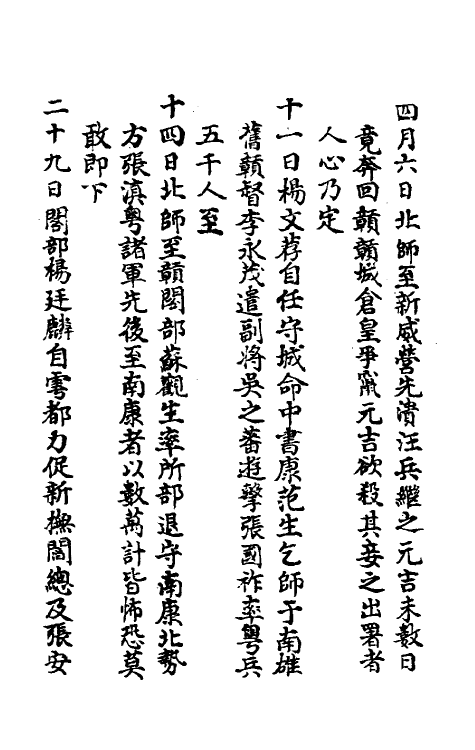 四月六日北師至新威營先潰汪兵繼之元吉未數日
竟奔回贑贑城倉皇爭竄元吉欲殺其妾之出署者
人心乃定
十一日楊文荐自任守城命中書康范生乞師于南雄
舊贑督李永茂遣副將吳之蕃遊擊張國祚率粵兵
五千人至
十四日北師至贑閣部蘇觀生率所部退守南康北勢
方張滇粵諸軍先後至南康者以數萬計皆怖恐莫
敢即下
二十九日閣部楊廷麟自雩都力促新撫閻總及張安